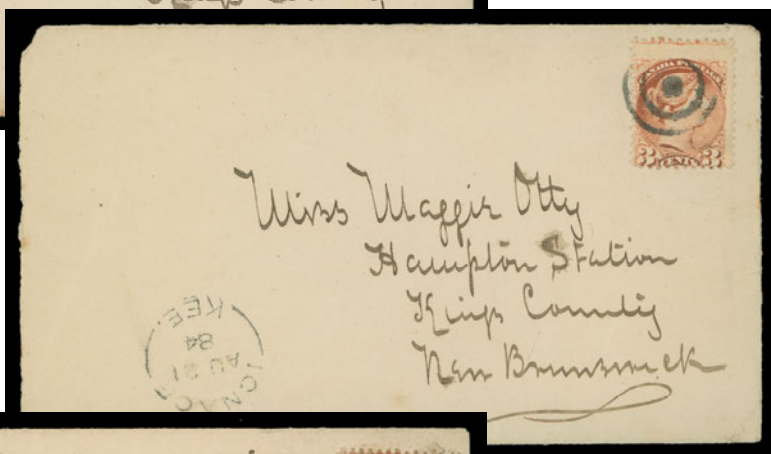 Kings County
CANADA POSTAGE
3 CENTS 3
Miss Maggie Otty
Hampton Station
Kings County
New Brunswick
IGNACE
AU 21
84
KEE.